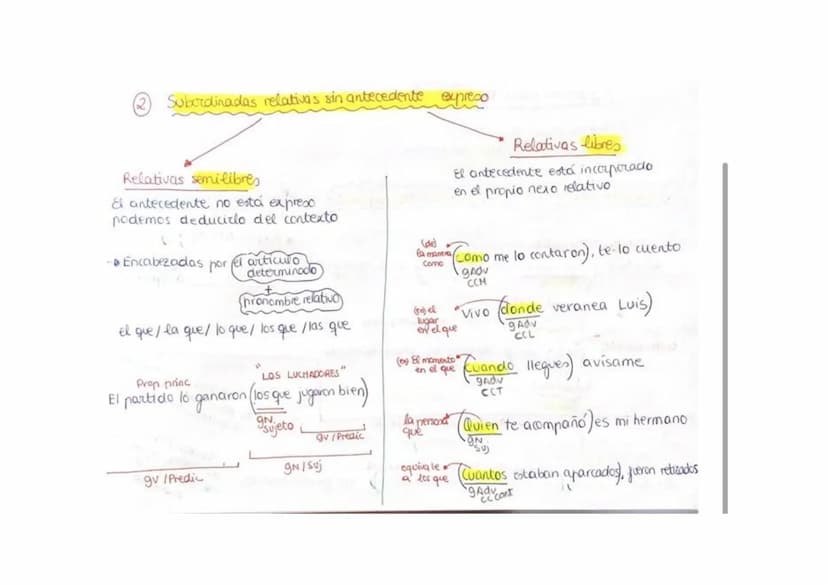 ② Subordinadas relativas sin antecedente expreso
Relativas semilibres
El antecedente no está expreso
podemos deducirlo del contexto
Encabezadas por el artículo
determinado
+
pronombre relativo
el que / la que / lo que / los que / las que
"LOS LUCHADORES"
Prop princ
El partido lo ganaron (los que jugaron bien)
GN
Sujeto
GV / Predic
GN / Suj
GV / Predic
Relativas libres
El antecedente está incorporado
en el propio nexo relativo
(de)
la manera
como
(Como me lo contaron), te lo cuento
gAdv
CCM
(en) el
lugar
en el que
Vivo (donde veranea Luis)
gAdv
CCL
(en) El momento
en el que
(Cuando llegues) avísame
gAdv
CCT
la persona
que
(Quien te acompañó) es mi hermano
GN
Suj
equivale
a los que
(Cuantos estaban aparcados), fueron retirados
gAdv
CCCant